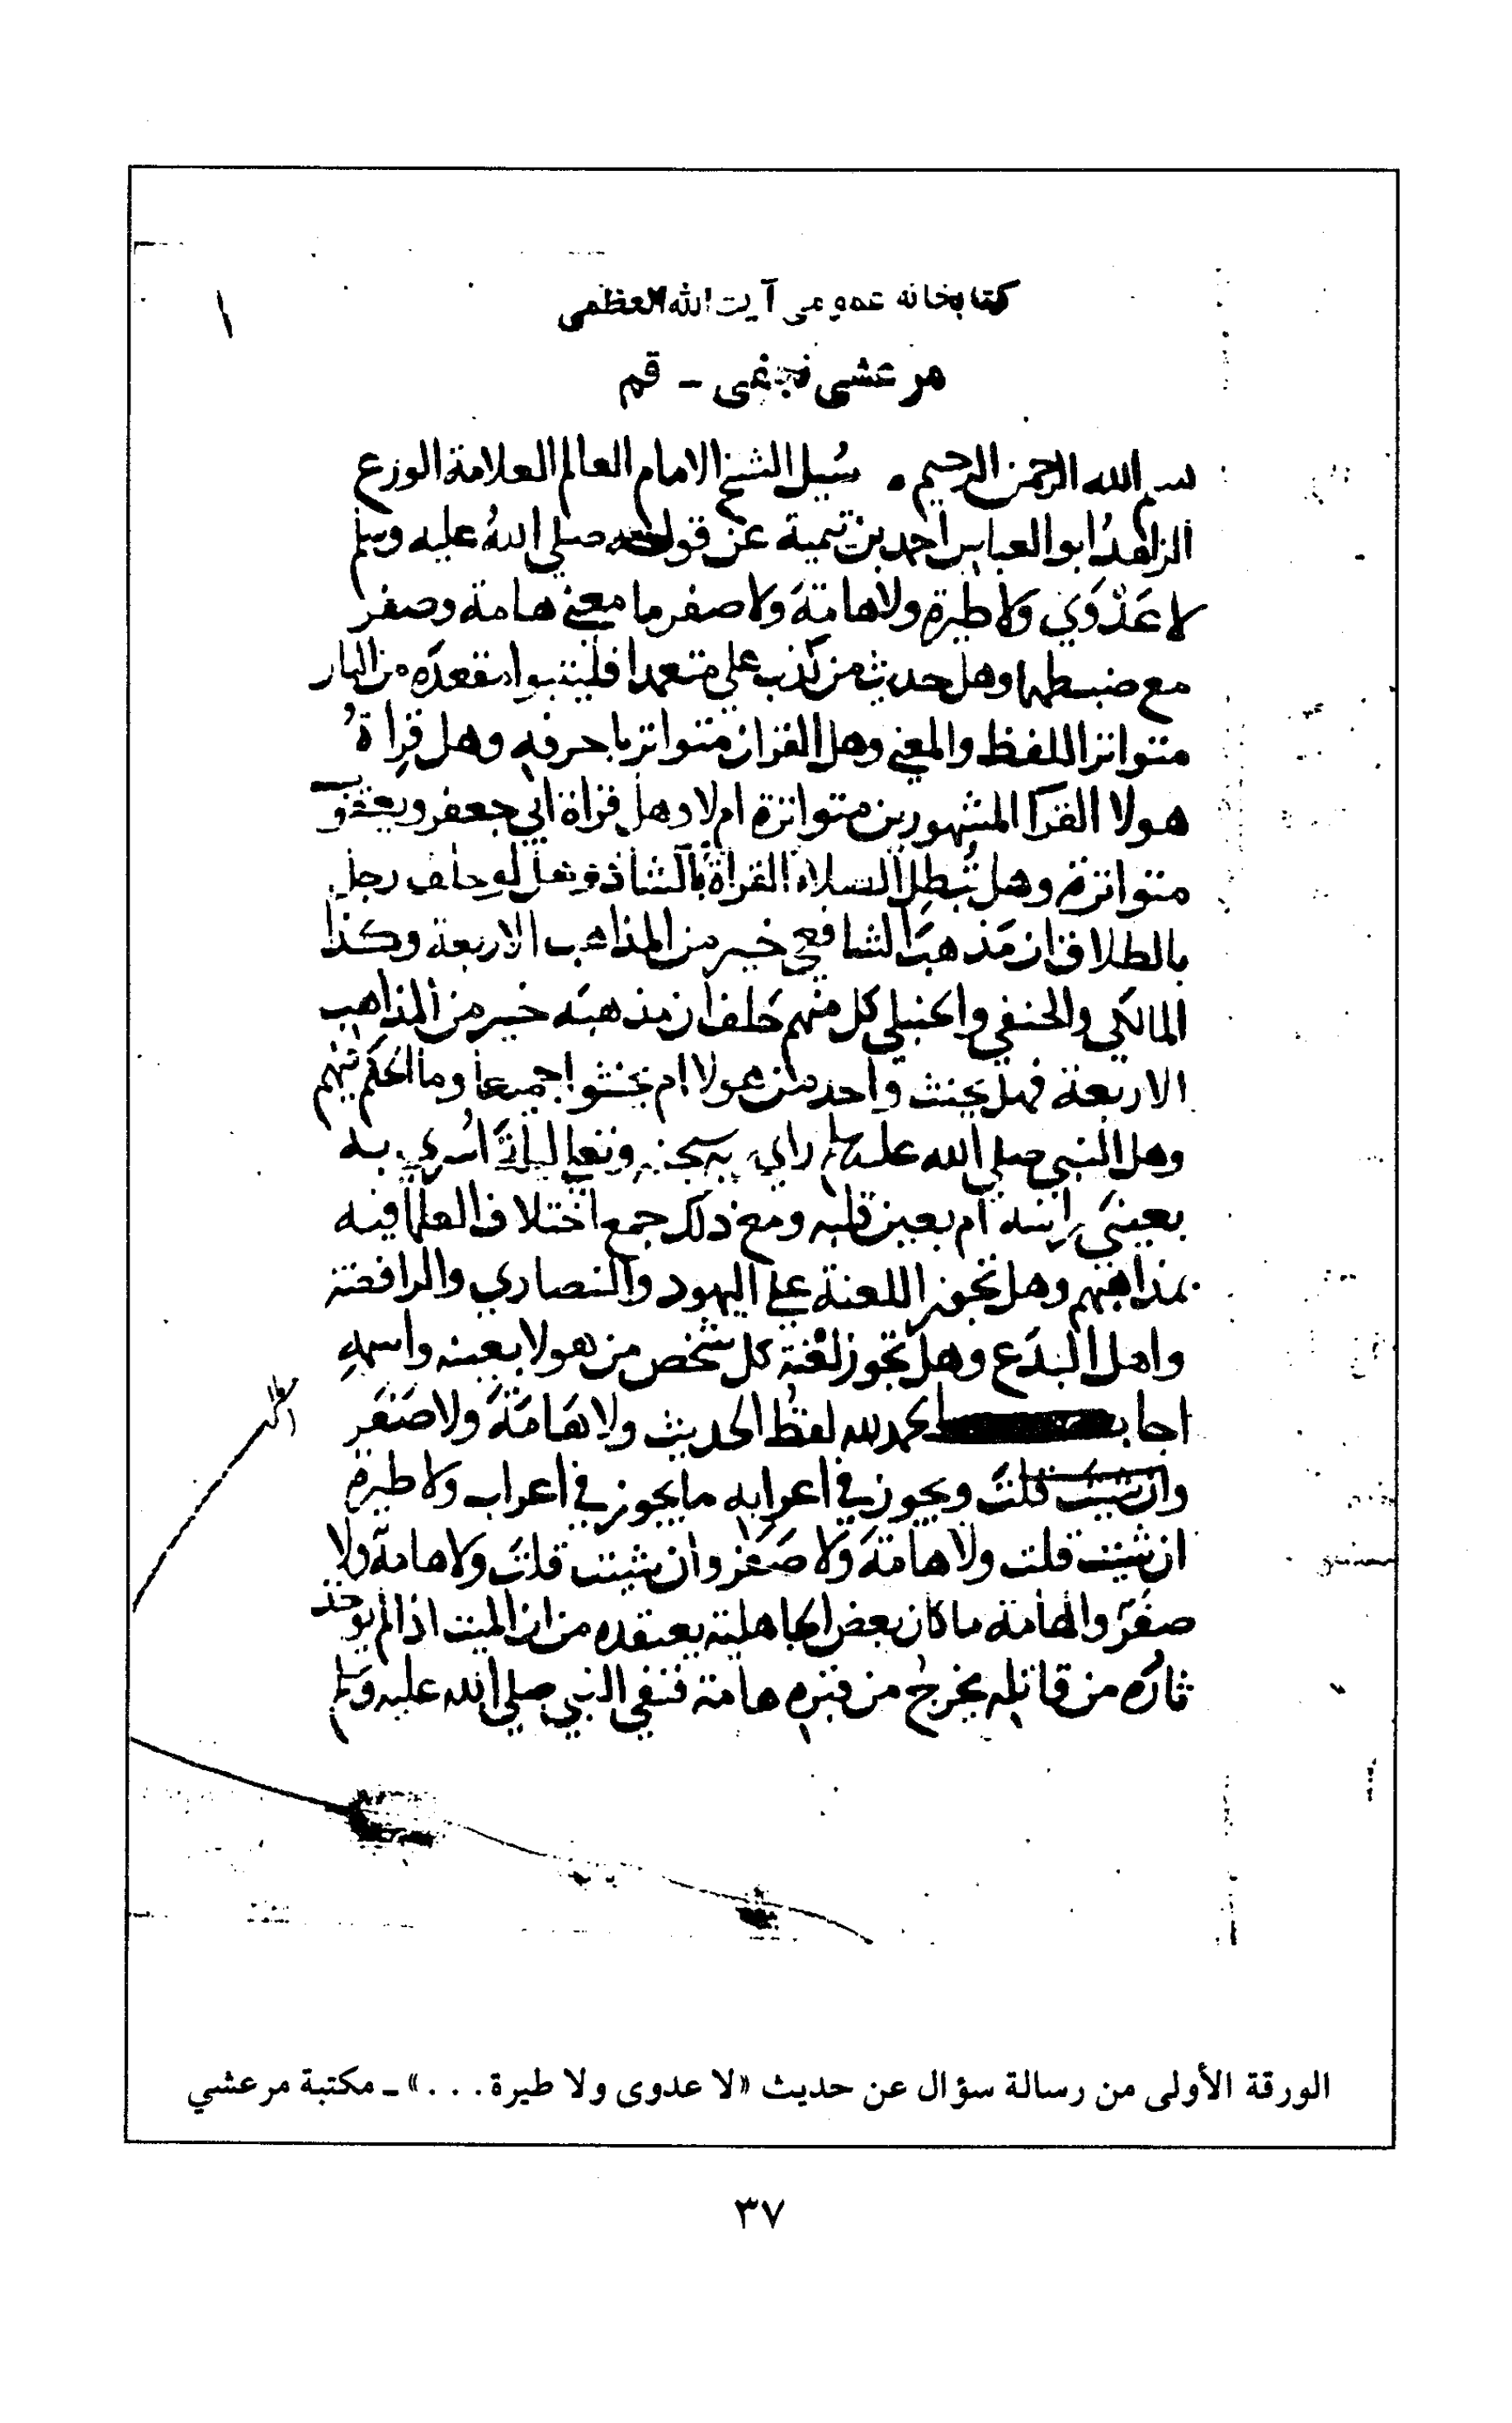 ١
كتابخانه عمومى آيت الله العظمى
مرعشى نجفى - قم
بسم الله الرحمن الرحيم . سُيل الشيخ الامام العالم العلامة الورع
الزاهدُ ابو العباس احمد بن تيمية عن قوله صلي اللهُ عليه وسلم
لا عَدْوَي ولا طيرة ولا هامةَ ولا صفر ما معني هامة وصفر
مع ضبطهما وهل حديث من كذب علي متعمدا فليتبوا مقعدَه من النار
متواتر اللفظ والمعني وهل القران متواتر باحرفه وهل قِراةُ
هولا القرآ المشهورين متواترة ام لا وهل قراة ابي جعفر ويعقوب
متواترة وهل تُبطِل الصلاة القراةُ بالشاذ وهل لو حلف رجل
بالطلاق ان مَذهبَ الشافعي خير من المذاهب الاربعة وكذا
المالكي والحنفي والحنبلي كل منهم حَلف ان مذهبَه خير من المذاهب
الاربعة فهل يحنث واحد من هولا ام يحنثوا جميعا وما الحكم فيهم
وهل النبي صلي الله عليه راي ربه وتعالي ليلةَ اُسري به
بعينَي راسه ام بعين قلبه ومع ذلك جمع اختلاف العلما فيه
بمذاهبهم وهل تجوز اللعنة علي اليهود والنصاري والرافضة
واهل البدَع وهل تجوز لعْنة كل شخص من هولا بعينه واسمهِ
اجاب الحمد لله لفظ الحديث ولا هَامَةَ ولا صَفَر
وان شيت قلت ويجوز في اعرابه ما يجوز في اعراب ولا طيرة
ان شيت قلت ولا هامةَ ولا صَفَر وان شيت قلتَ ولا هامة ولا
صفَر والهامة ما كان بعض الجاهلية يعتقده من ان الميت اذا لم يوخذ
ثاره من قاتله يخرج من قبره هامة فنفي النبي صلي الله عليه وسلم
الورقة الأولى من رسالة سؤال عن حديث «لا عدوى ولا طيرة...» - مكتبة مرعشي
٣٧